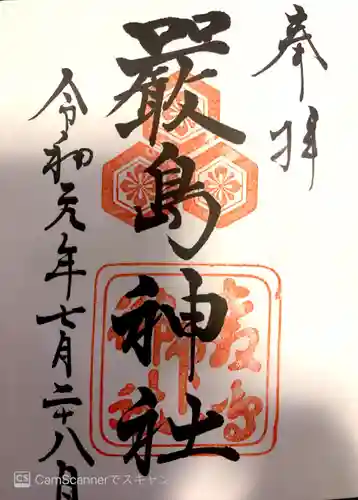 奉拝
嚴島神社
令和元年七月二十八日
嚴島神社
CS CamScannerでスキャン